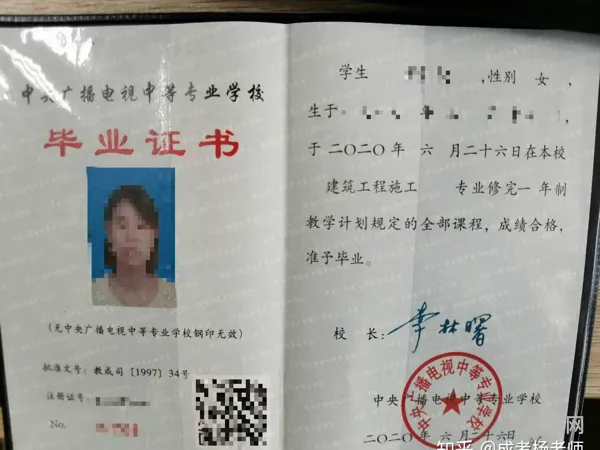 中央广播电视中等专业学校
毕业证书
(无中央广播电视中等专业学校钢印无效)
批准文号：教成司［1997］34号
注册证号：
No.
学生 ,性别 女 ,
生于 年
于二〇二〇年 六 月二十六日在本校
建筑工程施工 专业修完一年制
教学计划规定的全部课程，成绩合格，
准予毕业。
校 长：李林曙
中央广播电视中等专业学校
中央广播电视中等专业学校
二〇二〇年 六 月二十六日
知乎 @成考杨老师
网